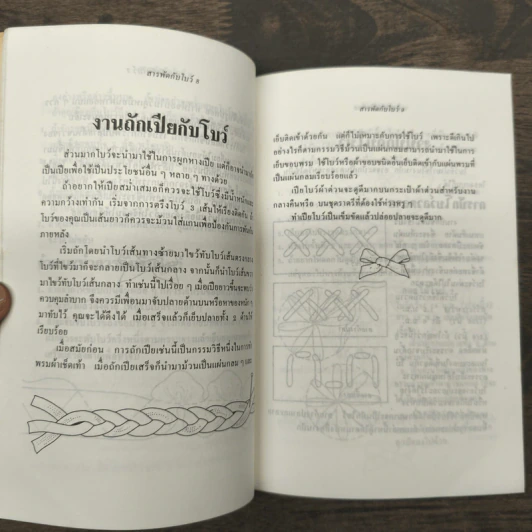 สารพัดกับโบว์ ๑
งานถักเปียกับโบว์
ส่วนมากโบว์จะนำมาใช้ในการผูกหางเปีย แต่ก็อาจนำมา
เป็นเปียเพื่อใช้เป็นประโยชน์อื่น ๆ หลาย ๆ ทางด้วย
ถ้าอยากให้เปียสม่ำเสมอก็ควรจะใช้โบว์ซึ่งมีน้ำหนักและ
ความกว้างเท่ากัน เริ่มจากการตรึงโบว์ ๓ เส้นให้เรียงติดกัน
โบว์ของคุณเป็นเส้นยาวก็ควรจะม้วนใส่แกนเพื่อป้องกันการพันกัน
ภายหลัง
เริ่มถักโดยนำโบว์เส้นทางซ้ายมาไขว้ทับโบว์เส้นตรงกลาง
โบว์ที่ไขว้มาก็จะกลายเป็นโบว์เส้นกลาง จากนั้นก็นำโบว์เส้น
มาไขว้ทับโบว์เส้นกลาง ทำเช่นนี้ไปเรื่อย ๆ เมื่อเปียยาวขึ้นจะ
ควบคุมลำบาก จึงควรมีเพื่อนมาจับปลายด้านบนหรือหาของหนัก ๆ
มาทับไว้ คุณจะได้ดึงได้ เมื่อเสร็จแล้วก็เย็บปลายทั้ง ๓ ด้านให้
เรียบร้อย
เมื่อสมัยก่อน การถักเปียเช่นนี้เป็นกรรมวิธีหนึ่งในการทำ
พรมผ้าเช็ดเท้า เมื่อถักเปียเสร็จก็นำมาม้วนเป็นแผ่นกลม ๆ และ
สารพัดกับโบว์ ๑
เย็บติดเข้าด้วยกัน แต่ก็ไม่เหมาะกับการใช้โบว์ เพราะดีเกินไป
อย่างไรก็ตามกรรมวิธีม้วนเป็นแผ่นกลมสามารถนำมาใช้ในการ
เย็บขอบพรม ใช้โบว์หรือผ้าขอบชนิดอื่นเย็บติดเข้ากับแผ่นพรมที่
เป็นแผ่นกลมเรียบร้อยแล้ว
เปียโบว์ผ้าต่วนจะดูดีมากบนกระเป๋าผ้าต่วนสำหรับงาน
กลางคืนหรือ บนชุดราตรีที่ต้องใช้ความหรู ๆ
ทำเปียโบว์เป็นเข็มขัดแล้วปล่อยปลายจะดูดีมาก